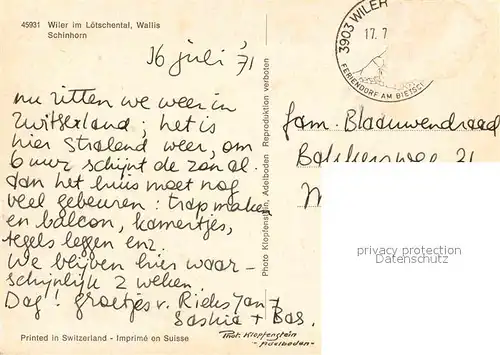 45931 Wiler im Lötschental, Wallis
Schinhorn
16 juli '71
nu zitten we weer in
Zwitserland; het is
hier stralend weer, om
6 uur schijnt de zon al.
Aan het huis moet nog
veel gebeuren: trap maken
en balcon, kamertjes,
tegels leggen enz.
We blijven hier waar-
schijnlijk 2 weken.
Dag! groetjes v. Rieks Jan
Saskia + Bas.
Printed in Switzerland - Imprimé en Suisse
Photo Klopfenstein, Adelboden Reproduktion verboten
3903 WILER
17. 7
FERIENDORF AM BIETSCH
fam. Blaauwendraad
21
privacy protection
delcampe.net
Phot. Klopfenstein
- Adelboden -